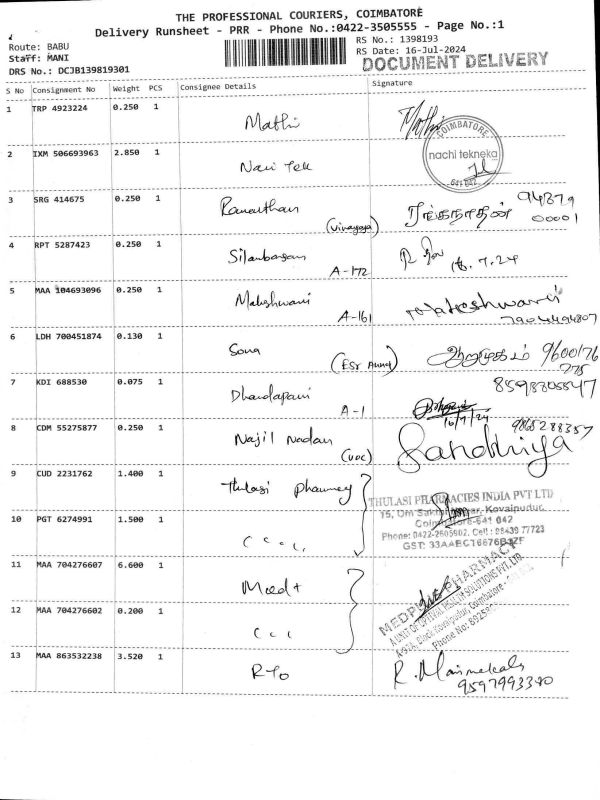 THE PROFESSIONAL COURIERS, COIMBATORE
Delivery Runsheet - PRR - Phone No.:0422-3505555 - Page No.:1
Route: BABU
Staff: MANI
DRS No.: DCJB139819301
RS No.: 1398193
RS Date: 16-Jul-2024
DOCUMENT DELIVERY
S No Consignment No Weight PCS Consignee Details Signature
1 TRP 4923224 0.250 1 Mathi
COIMBATORE
nachi tekneka
641 042
2 IXM 506693963 2.850 1 Navi Tek
3 SRG 414675 0.250 1 (Vinayaga) ரங்கநாதன் 94879
00001
4 RPT 5287423 0.250 1 Silambarasan
A-172 16.7.24
5 MAA 104693096 0.250 1 Maheshwari Maheshwari
A-161 7904494807
6 LDH 700451874 0.130 1 Sona ஆறுமுகம் 9600176
775
7 KDI 688530 0.075 1 Dhandapani
A-1 16/7/24
8 CDM 55275877 0.250 1 Najil Nadan
(VOC) Sandhiya
9 CUD 2231762 1.400 1 Thulasi
THULASI PHARMACIES INDIA PVT LTD
Kovaipudur,
Coimbatore-641 042
10 PGT 6274991 1.500 1
Phone: 0422-2605902, Cell : 98439 77723
11 MAA 704276607 6.600 1 Med+
12 MAA 704276602 0.200 1
13 MAA 863532238 3.520 1 RTO
9597993340